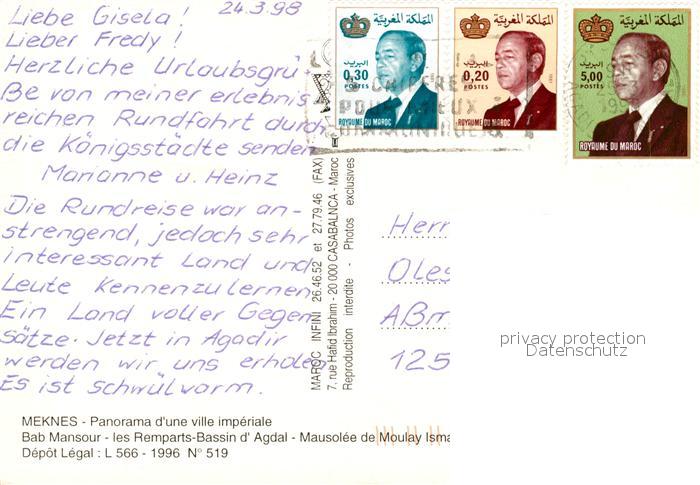 Liebe Gisela! 24.3.98
Lieber Fredy!
Herzliche Urlaubsgrü-
ße von meiner erlebnis
reichen Rundfahrt durch
die Königsstädte senden
Marianne u. Heinz
Die Rundreise war an-
strengend, jedoch sehr
interessant Land und
Leute Kennenzulernen
Ein Land voller Gegen
sätze. Jetzt in Agadir
werden wir uns erholen
Es ist schwülwarm.
المملكة المغربية
البريد
0,30
POSTES
ROYAUME DU MAROC
المملكة المغربية
البريد
0,20
POSTES
ROYAUME DU MAROC
المملكة المغربية
البريد
5,00
POSTES
ROYAUME DU MAROC
POUR MIEUX
MAROC INFINI 26.46.52 et 27.79.46 (FAX)
7, rue Hafid Ibrahim - 20 000 CASABALNCA - Maroc
Reproduction interdite - Photos exclusives
Herr
Oles
Aßm
125
privacy protection
Datenschutz
MEKNES - Panorama d'une ville impériale
Bab Mansour - les Remparts-Bassin d' Agdal - Mausolée de Moulay Isma
Dépôt Légal : L 566 - 1996 N° 519